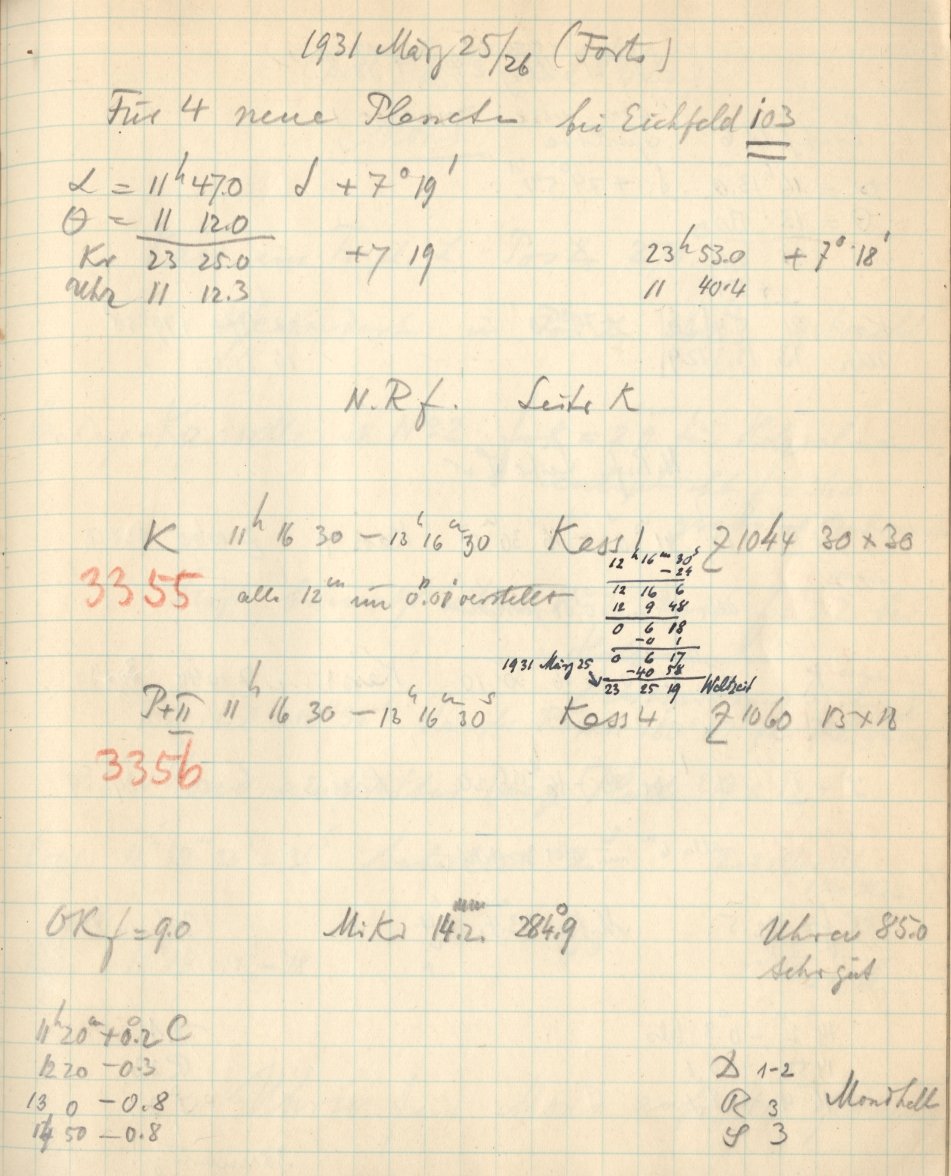 1931 März 25/26 (Forts)
Für 4 neue Planeten bei Eichfeld 103
α = 11ʰ 47.0 δ +7° 19'
θ = 11 12.0
Kr 23 25.0 +7 19 23ʰ 53.0 +7° 18'
Uhr 11 12.3 11 40.4
N.Rf. Seite K
K 11ʰ 16 30 – 13ʰ 16ᵐ 30 Kass 1 Z 1044 30 × 30
12ʰ 16ᵐ 30ˢ
– 24
3355 alle 12ᵐ um 0.01 verstellt 12 16 6
12 9 48
0 6 18
–0 1
1931 März 25 0 6 17
–40 58
23 25 19 Weltzeit
P+II 11ʰ 16 30 – 13ʰ 16ᵐ 30ˢ Kass 4 Z 1060 13 × 18
3356
OKf = 9.0 Mikr 14.2 284.9° Uhren 85.0
sehr gut
11ʰ 20ᵐ +0.2 C
12 20 –0.3
D 1-2
13 0 –0.8 R 3 Mondhell
14 50 –0.8 S 3